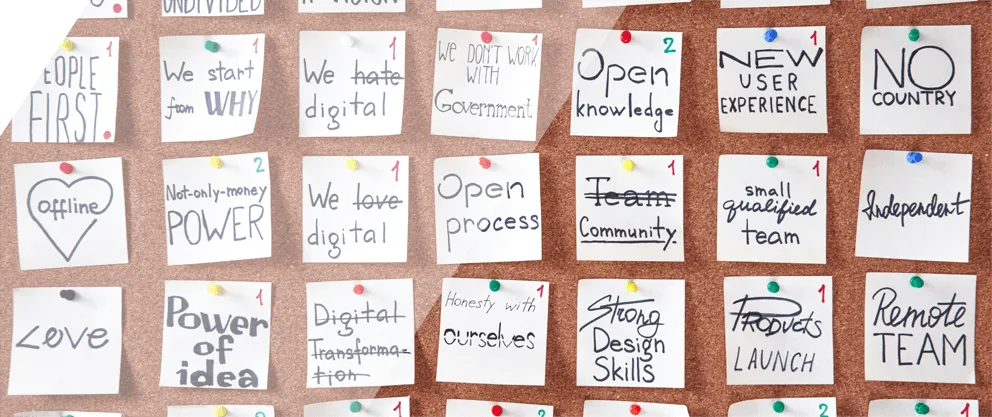 UNDIVIDED
1
EOPLE
FIRST.
1
We start
from WHY
1
We hate
digital
1
We DON'T WORK
WITH
Government
2
Open
knowledge
1
NEW
USER
EXPERIENCE
NO
COUNTRY
offline
2
Not-only-money
POWER
1
We love
digital
Open
process
1
Team
Community
1
small
qualified
team
Independent
Love
1
Power
of
idea
Digital
Transforma-
tion
1
Honesty with
ourselves
Strong
Design
Skills
1
PRODUCTS
LAUNCH
Remote
TEAM
2
1
2